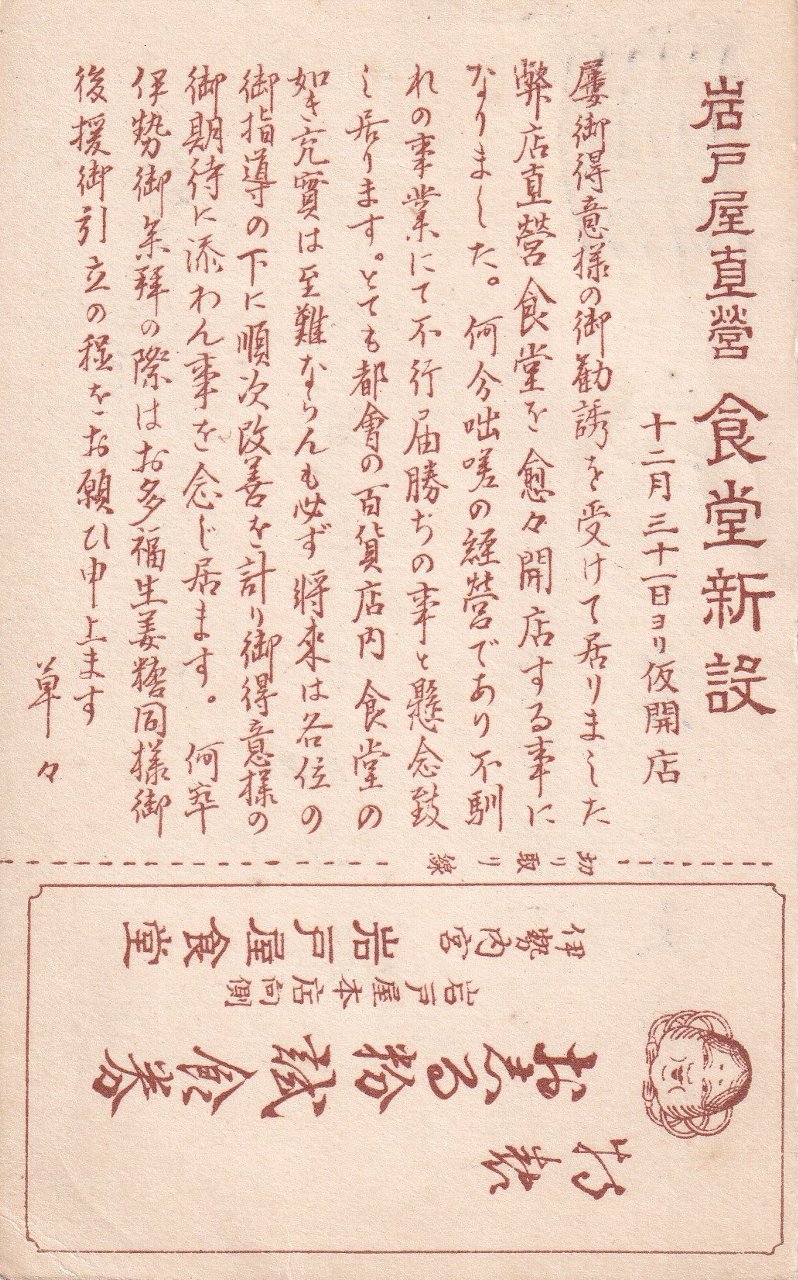 岩戸屋直營 食堂新設
十二月三十一日ヨリ仮開店
屡御得意様の御勧誘を受けて居りました
弊店直營食堂を愈々開店する事に
なりました。何分咄嗟の経營であり不馴
れの事業にて不行届勝ちの事と懸念致
し居ります。とても都會の百貨店内食堂の
如き充實は至難ならんも必ず將来は各位の
御指導の下に順次改善を計り御得意様の
御期待に添わん事を念じ居ます。何卒
伊勢御参拜の際はお多福生姜糖同様御
後援御引立の程をお願ひ申上ます
草々
切り取り線
伊勢内宮 岩戸屋食堂
岩戸屋本店向側
おしるこ 試食券